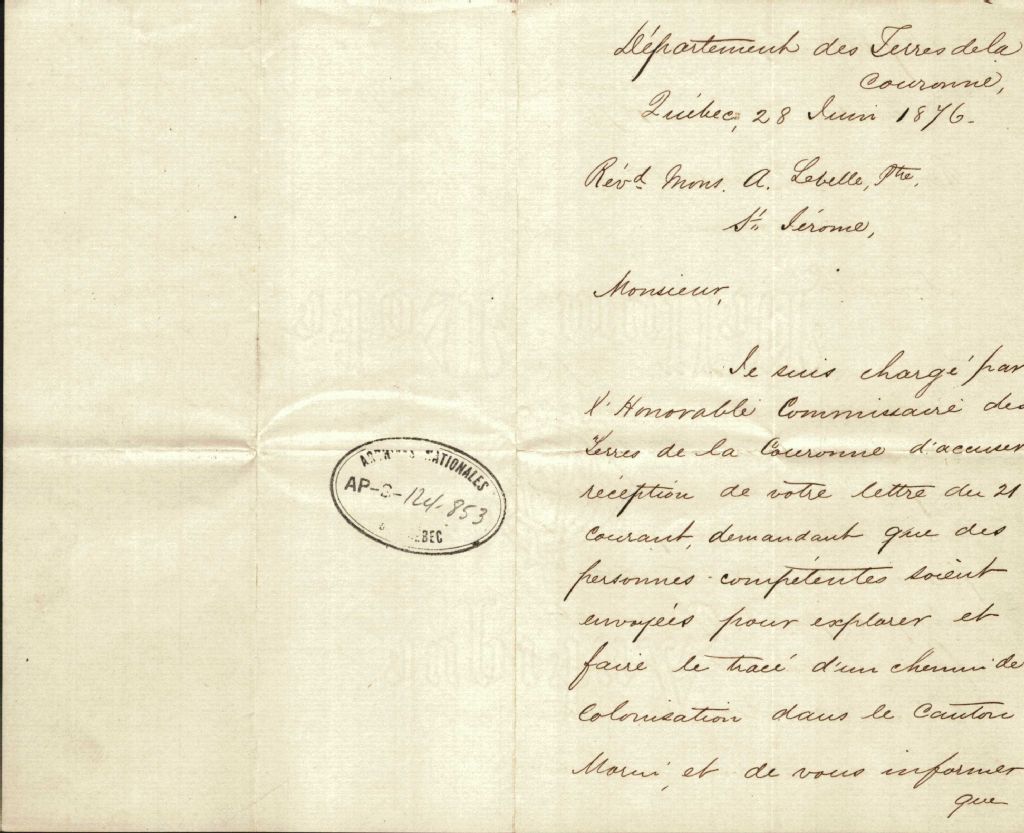 Département des Terres de la
Couronne,
Québec, 28 Juin 1876.
Révd. Mons. A. Labelle, Ptre.
St. Jérome,
Monsieur,
Je suis chargé par
l'Honorable Commissaire des
Terres de la Couronne d'accuser
réception de votre lettre du 21
courant, demandant que des
personnes compétentes soient
envoyées pour explorer et
faire le tracé d'un chemin de
colonisation dans le Canton
Morin, et de vous informer
que
ARCHIVES NATIONALES
AP-G-124.853
QUEBEC